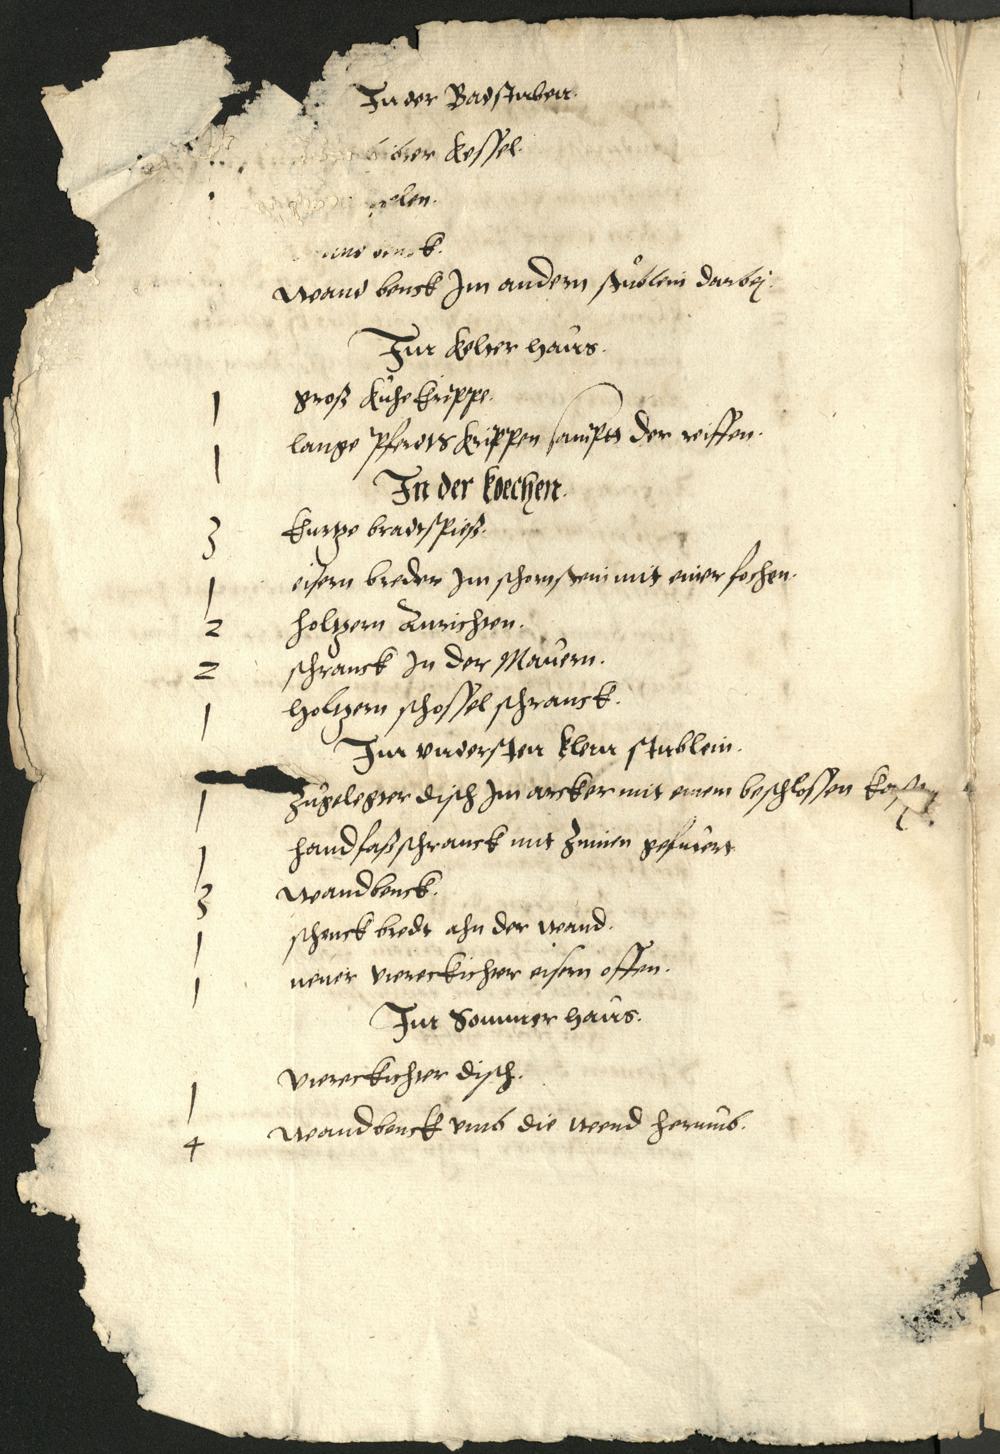 In der Badstuben.
kessel.
Wand benck Im andern stüblein darbej.
Im kelter haus.
1 gross kühe krippe.
1 lange Pferdts krippen sampt der reiffen.
In der koechen.
3 kurtze bradtspiess.
1 eisern breder Im schornstein mit einer
2 holtzern Anrichten.
2 schranck In der Mauern.
1 holtzern schossel schranck.
Im vndersten klein stublein.
1 zugelegter disch Im arcker mit einem beschlossen
1 handfass schranck mit Zinnen gefutert
3 Wandbenck.
1 schenck bredt ahn der wand.
1 neuer viereckichter eisern offen.
Im Sommer haus.
1 viereckichter disch.
4 Wandbenck vmb die wend herumb.